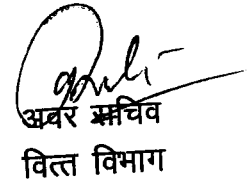 अवर सचिव
वित्त विभाग